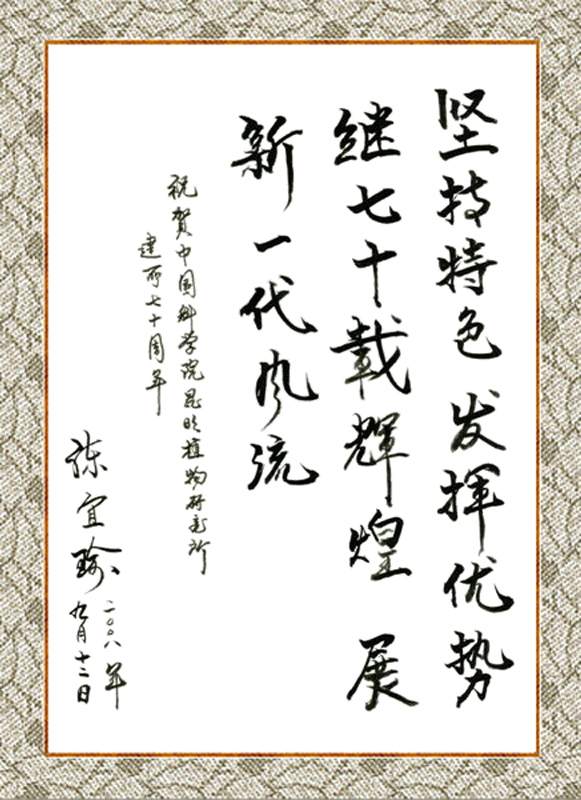 坚持特色 发挥优势
继七十载辉煌 展
新一代风流
祝贺中国科学院昆明植物研究所
建所七十周年
陈宜瑜
二〇〇八年
九月十二日